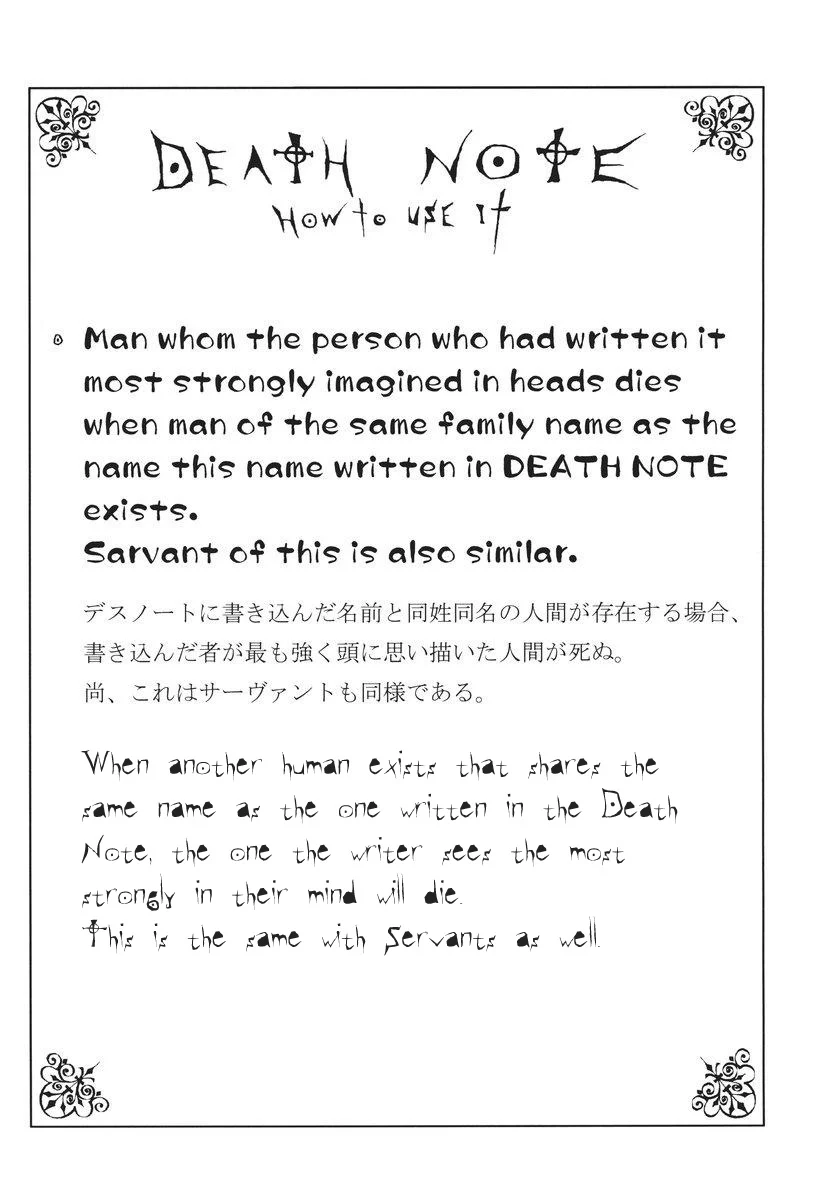 DEATH NOTE
HOW to USE It
Man whom the person who had written it
most strongly imagined in heads dies
when man of the same family name as the
name this name written in DEATH NOTE
exists.
Sarvant of this is also similar.
デスノートに書き込んだ名前と同姓同名の人間が存在する場合、
書き込んだ者が最も強く頭に思い描いた人間が死ぬ。
尚、これはサーヴァントも同様である。
When another human exists that shares the
same name as the one written in the Death
Note, the one the writer sees the most
strongly in their mind will die.
This is the same with Servants as well.